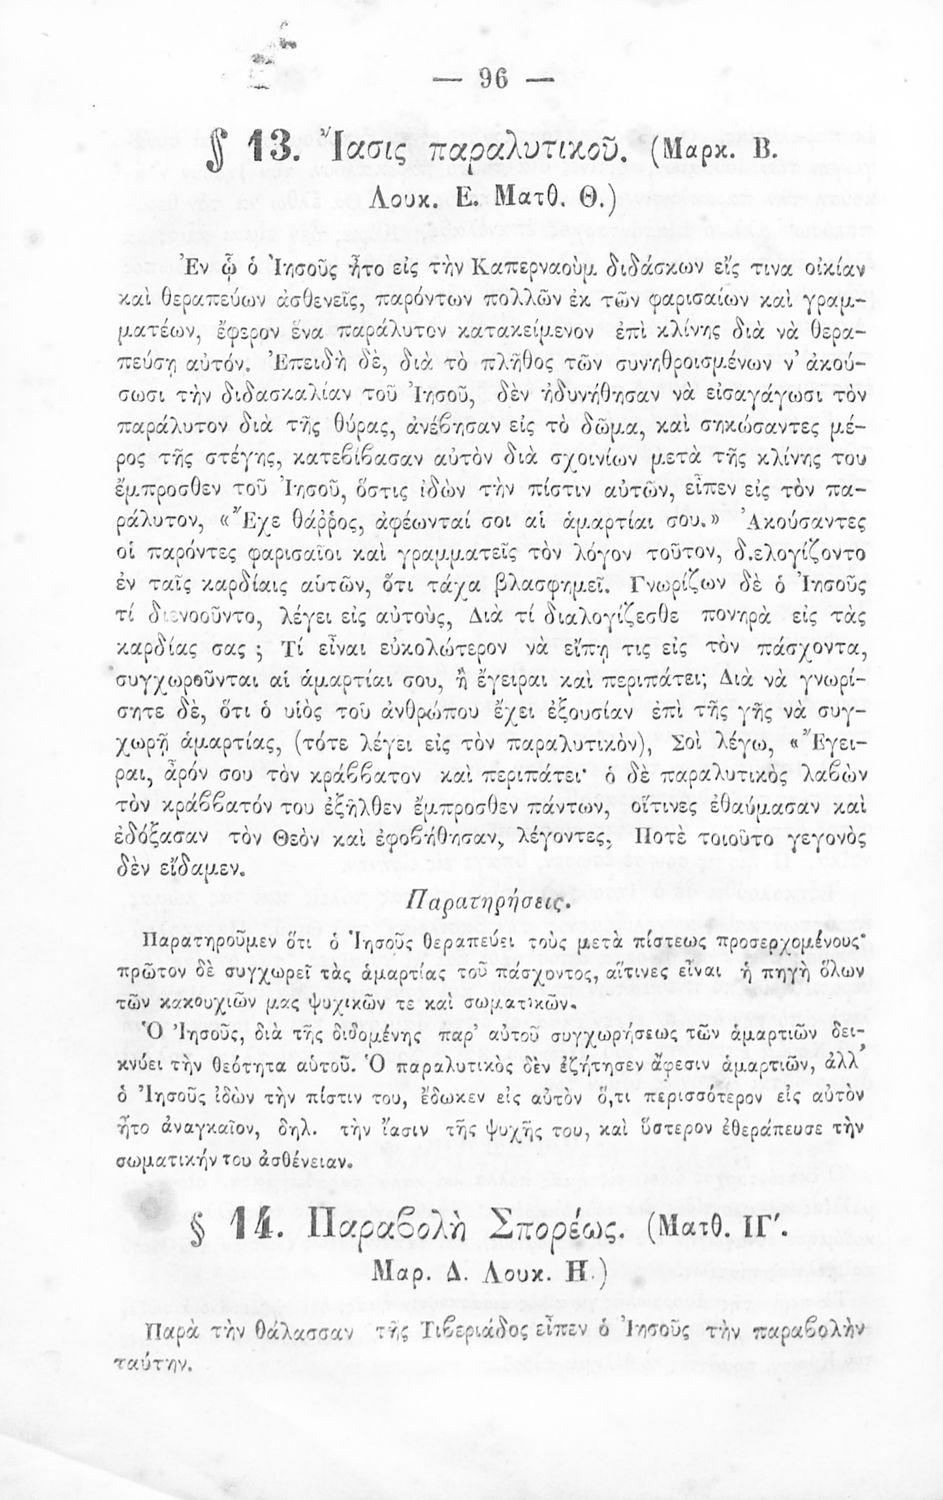 — 96 —
§ 13. Ἴασις παραλυτικοῦ. (Μαρκ. Β.
Λουκ. Ε. Ματθ. Θ.)
Ἐν ᾧ ὁ Ἰησοῦς ἦτο εἰς τὴν Καπερναοὺμ διδάσκων εἴς τινα οἰκίαν
καὶ θεραπεύων ἀσθενεῖς, παρόντων πολλῶν ἐκ τῶν φαρισαίων καὶ γραμ-
ματέων, ἔφερον ἕνα παράλυτον κατακείμενον ἐπὶ κλίνης διὰ νὰ θερα-
πεύσῃ αὐτόν. Ἐπειδὴ δὲ, διὰ τὸ πλῆθος τῶν συνηθροισμένων ν’ ἀκού-
σωσι τὴν διδασκαλίαν τοῦ Ἰησοῦ, δὲν ἠδυνήθησαν νὰ εἰσαγάγωσι τὸν
παράλυτον διὰ τῆς θύρας, ἀνέβησαν εἰς τὸ δῶμα, καὶ σηκώσαντες μέ-
ρος τῆς στέγης, κατεβίβασαν αὐτὸν διὰ σχοινίων μετὰ τῆς κλίνης του
ἔμπροσθεν τοῦ Ἰησοῦ, ὅστις ἰδὼν τὴν πίστιν αὐτῶν, εἶπεν εἰς τὸν πα-
ράλυτον, «Ἔχε θάῤῥος, ἀφέωνταί σοι αἱ ἁμαρτίαι σου.» Ἀκούσαντες
οἱ παρόντες φαρισαῖοι καὶ γραμματεῖς τὸν λόγον τοῦτον, δ.ελογίζοντο
ἐν ταῖς καρδίαις αὑτῶν, ὅτι τάχα βλασφημεῖ. Γνωρίζων δὲ ὁ Ἰησοῦς
τί διενοοῦντο, λέγει εἰς αὐτοὺς, Διὰ τί διαλογίζεσθε πονηρὰ εἰς τὰς
καρδίας σας ; Τί εἶναι εὐκολώτερον νὰ εἴπῃ τις εἰς τὸν πάσχοντα,
συγχωροῦνται αἱ ἁμαρτίαι σου, ἢ ἔγειραι καὶ περιπάτει; Διὰ νὰ γνωρί-
σητε δὲ, ὅτι ὁ υἱὸς τοῦ ἀνθρώπου ἔχει ἐξουσίαν ἐπὶ τῆς γῆς νὰ συγ-
χωρῇ ἁμαρτίας, (τότε λέγει εἰς τὸν παραλυτικὸν), Σοὶ λέγω, «Ἔγει-
ραι, ἆρόν σου τὸν κράββατον καὶ περιπάτει· ὁ δὲ παραλυτικὸς λαβὼν
τὸν κράββατόν του ἐξῆλθεν ἔμπροσθεν πάντων, οἵτινες ἐθαύμασαν καὶ
ἐδόξασαν τὸν Θεὸν καὶ ἐφοβήθησαν, λέγοντες, Ποτὲ τοιοῦτο γεγονὸς
δὲν εἴδαμεν.
Παρατηρήσεις.
Παρατηροῦμεν ὅτι ὁ Ἰησοῦς θεραπεύει τοὺς μετὰ πίστεως προσερχομένους·
πρῶτον δὲ συγχωρεῖ τὰς ἁμαρτίας τοῦ πάσχοντος, αἵτινες εἶναι ἡ πηγὴ ὅλων
τῶν κακουχιῶν μας ψυχικῶν τε καὶ σωματικῶν.
Ὁ Ἰησοῦς, διὰ τῆς διδομένης παρ’ αὐτοῦ συγχωρήσεως τῶν ἁμαρτιῶν δει-
κνύει τὴν θεότητα αὑτοῦ. Ὁ παραλυτικὸς δὲν ἐζήτησεν ἄφεσιν ἁμαρτιῶν, ἀλλ’
ὁ Ἰησοῦς ἰδὼν τὴν πίστιν του, ἔδωκεν εἰς αὐτὸν ὅ,τι περισσότερον εἰς αὐτὸν
ἦτο ἀναγκαῖον, δηλ. τὴν ἴασιν τῆς ψυχῆς του, καὶ ὕστερον ἐθεράπευσε τὴν
σωματικήν του ἀσθένειαν.
§ 14. Παραβολὴ Σπορέως. (Ματθ. ΙΓ'.
Μαρ. Δ. Λουκ. Η.)
Παρὰ τὴν θάλασσαν τῆς Τιβεριάδος εἶπεν ὁ Ἰησοῦς τὴν παραβολὴν
ταύτην.